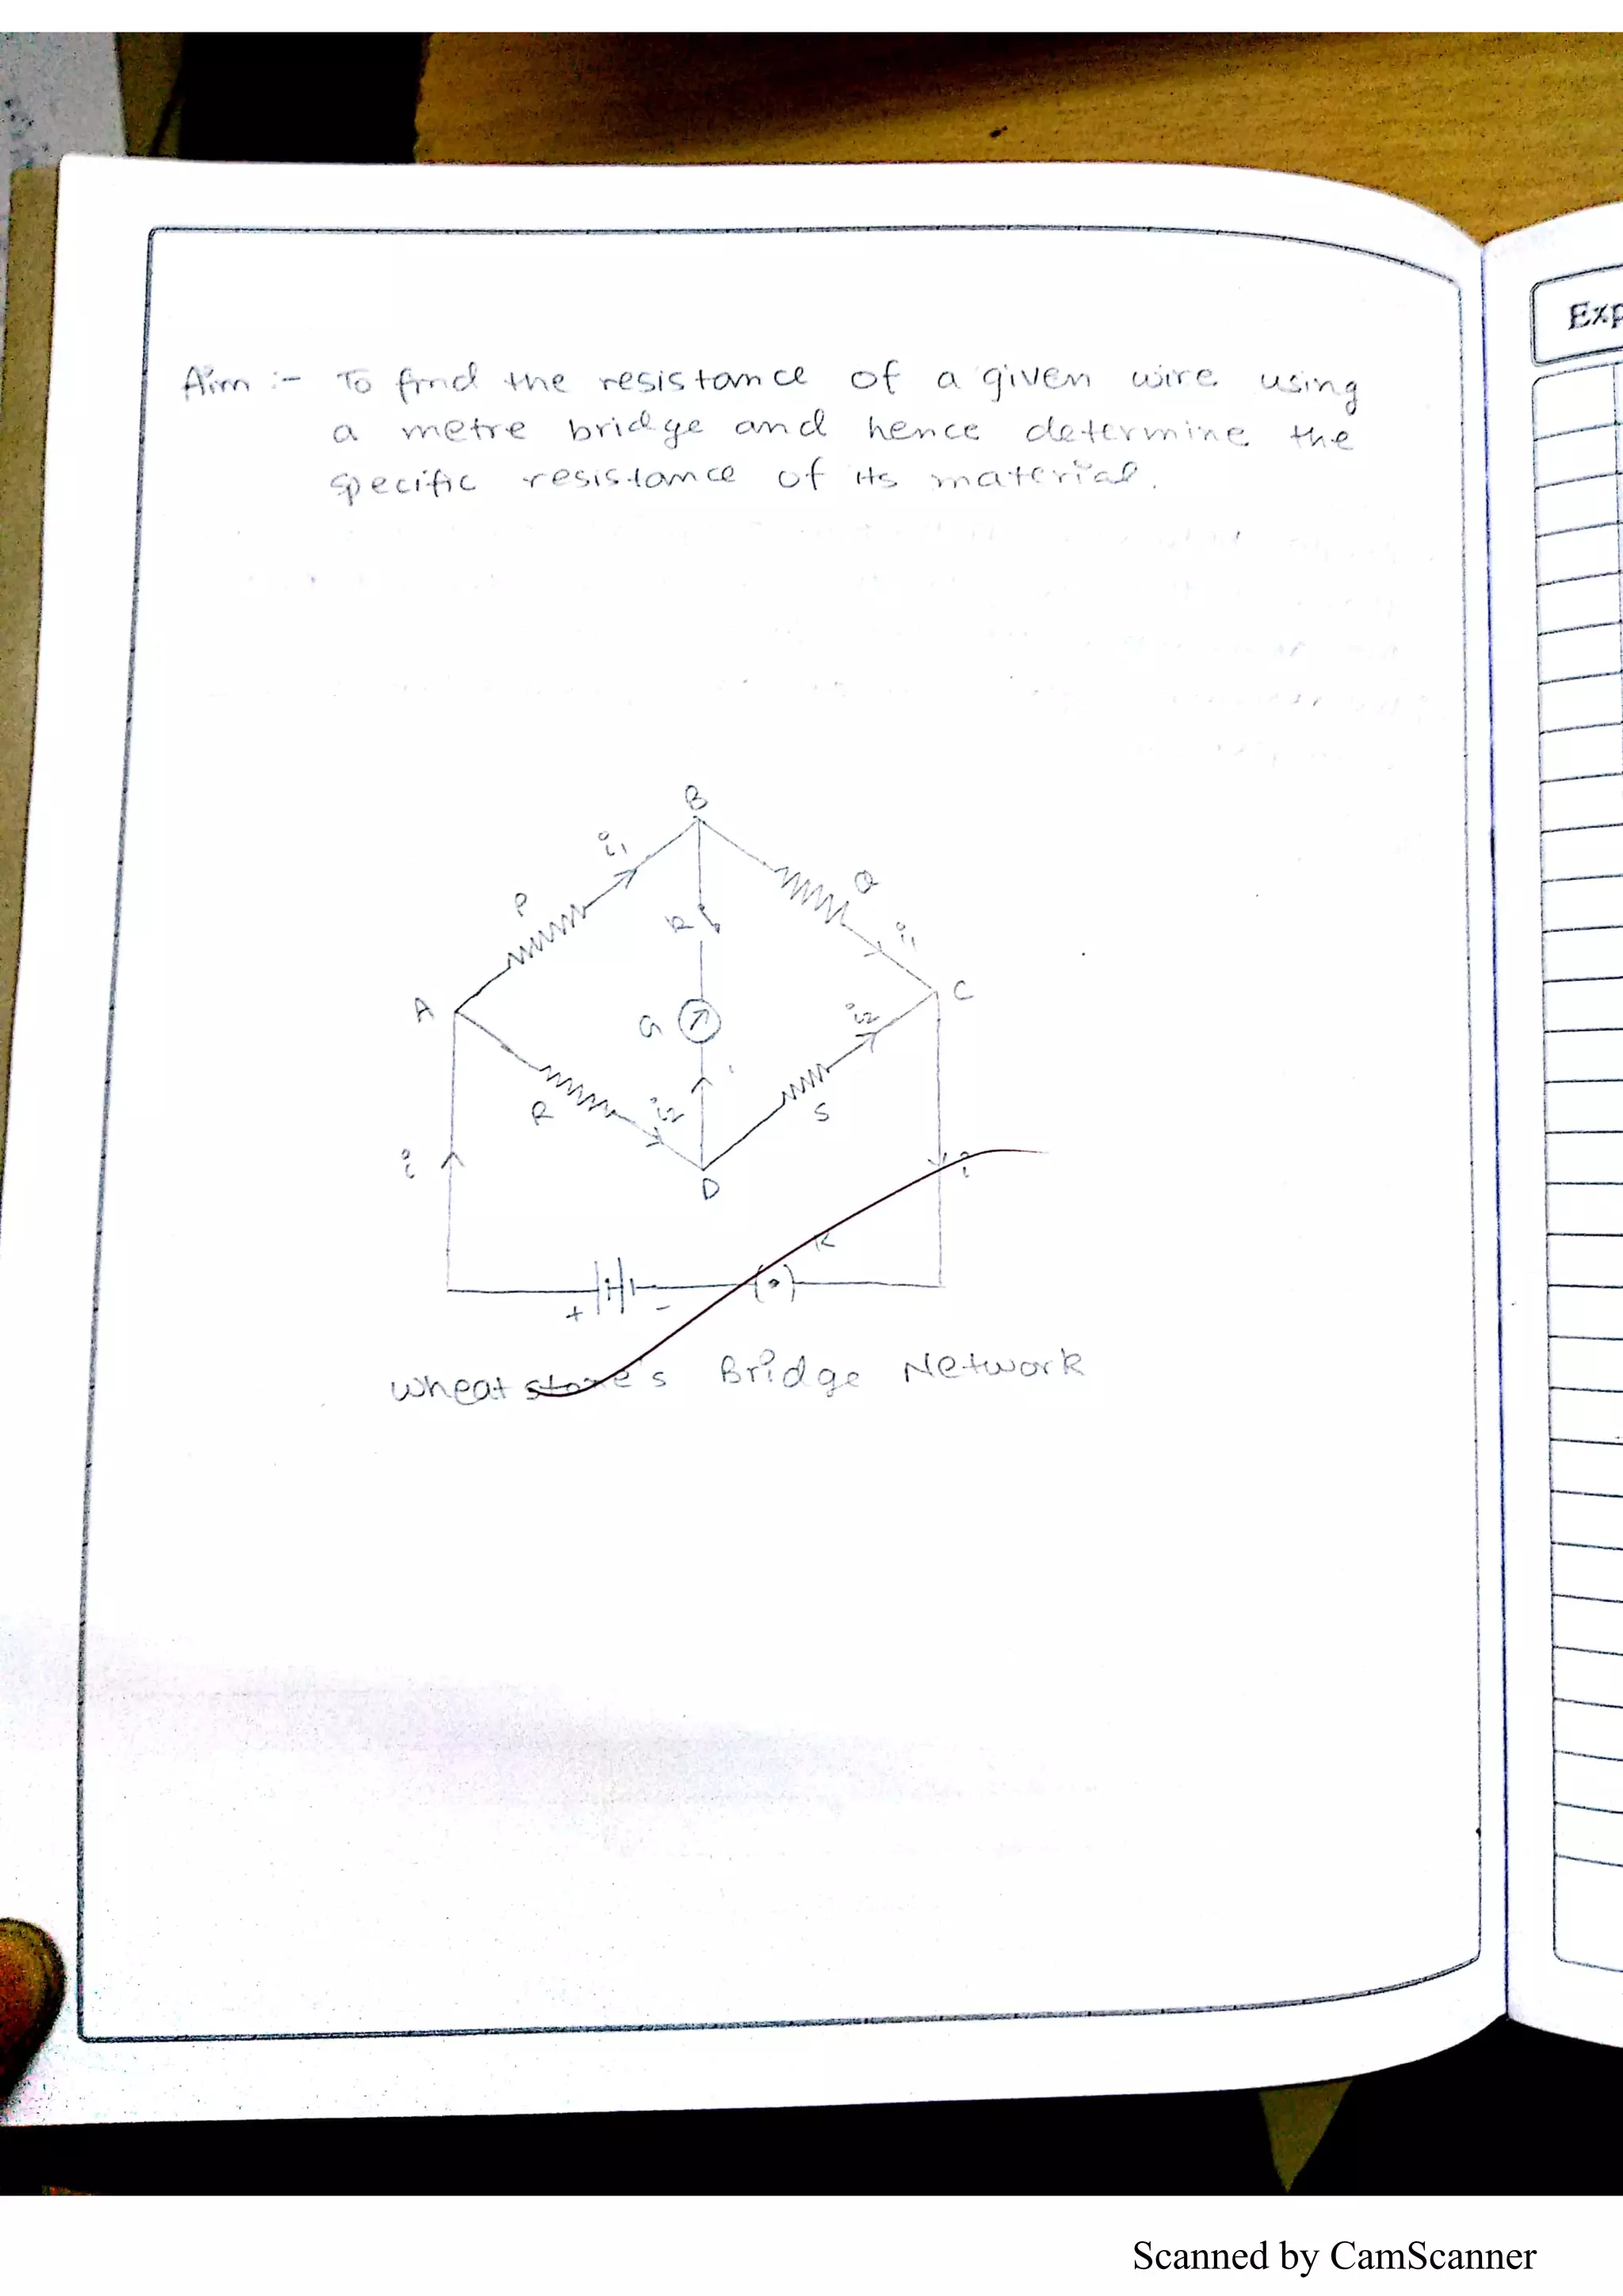 Exp
Aim :- To find the resistance of a given wire using
a metre bridge and hence determine the
specific resistance of its material.
B
i1
P
Q
K
i1
A
C
G
i2
R
i2
S
i
D
i
K
+ -
Wheatstone's Bridge Network
Scanned by CamScanner